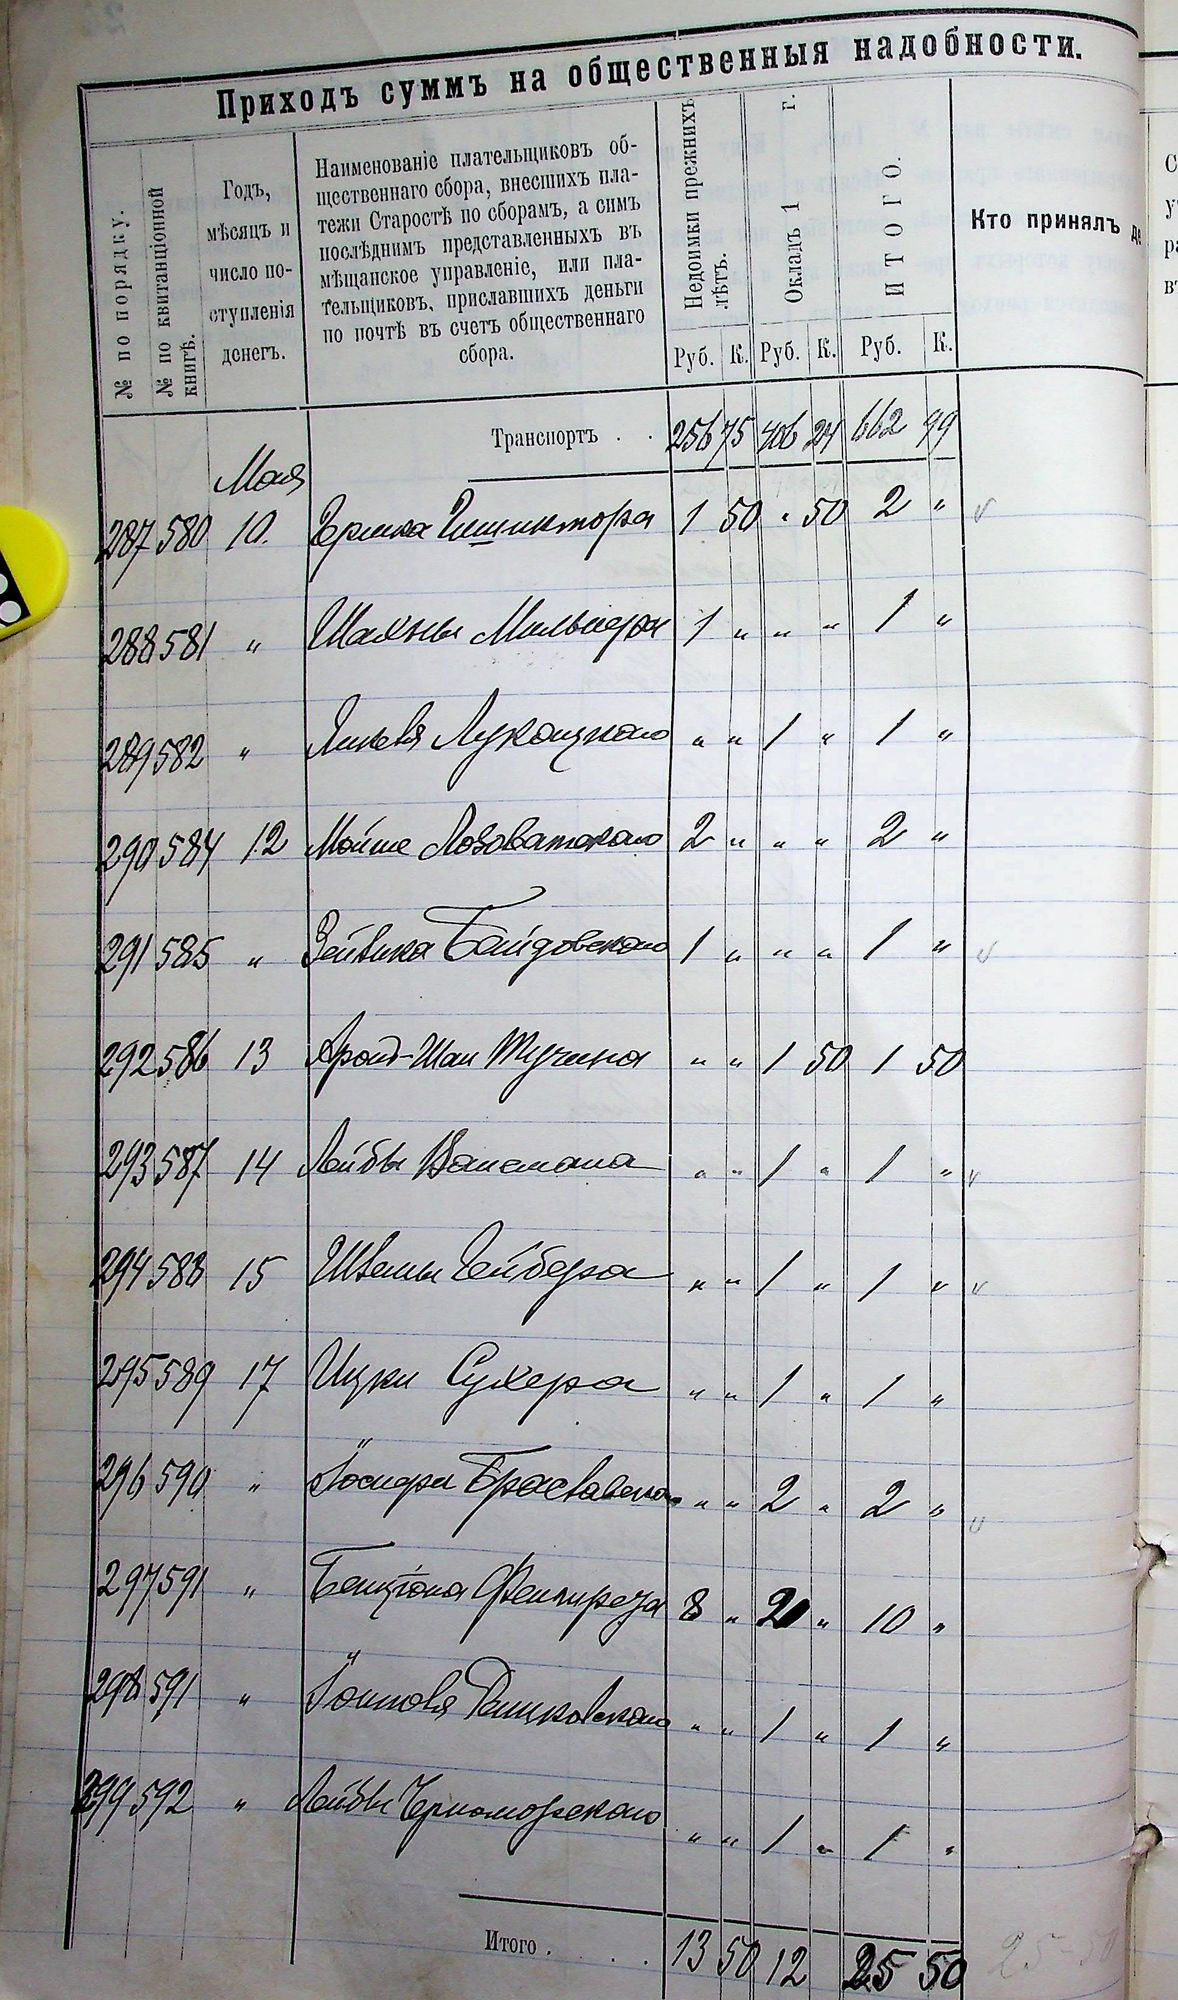 Приходъ суммъ на общественныя надобности.
№ по порядку.
№ по квитанціонной
книгѣ.
Годъ,
мѣсяцъ и
число по-
ступленія
денегъ.
Наименованіе плательщиковъ об-
щественнаго сбора, внесшихъ пла-
тежи Старостѣ по сборамъ, а симъ
послѣднимъ представленныхъ въ
мѣщанское управленіе, или пла-
тельщиковъ, приславшихъ деньги
по почтѣ въ счетъ общественнаго
сбора.
Недоимки прежнихъ
лѣтъ.
Окладъ 1 г.
ИТОГО.
Кто принялъ де
Руб. К. Руб. К. Руб. К.
Транспортъ . . 256 75 406 24 662 99
Мая
287 580 10 1 50 " 50 2 "
288 581 " Шахны 1 " " " 1 "
289 582 " " " 1 " 1 "
290 584 12 Мойше Лозоватскаго 2 " " " 2 "
291 585 " Зейвика Байдовскаго 1 " " " 1 "
292 586 13 Тучина " " 1 50 1 50
293 587 14 Лейбы Вайсмана " " 1 " 1 "
294 588 15 " " 1 " 1 "
295 589 17 Ицки Сухера " " 1 " 1 "
296 590 " " " 2 " 2 "
297 591 " Бенціона 8 " 2 " 10 "
298 591 " " " 1 " 1 "
299 592 " Лейбы Черноморскаго " " 1 " 1 "
Итого . . . 13 50 12 25 50
25-50